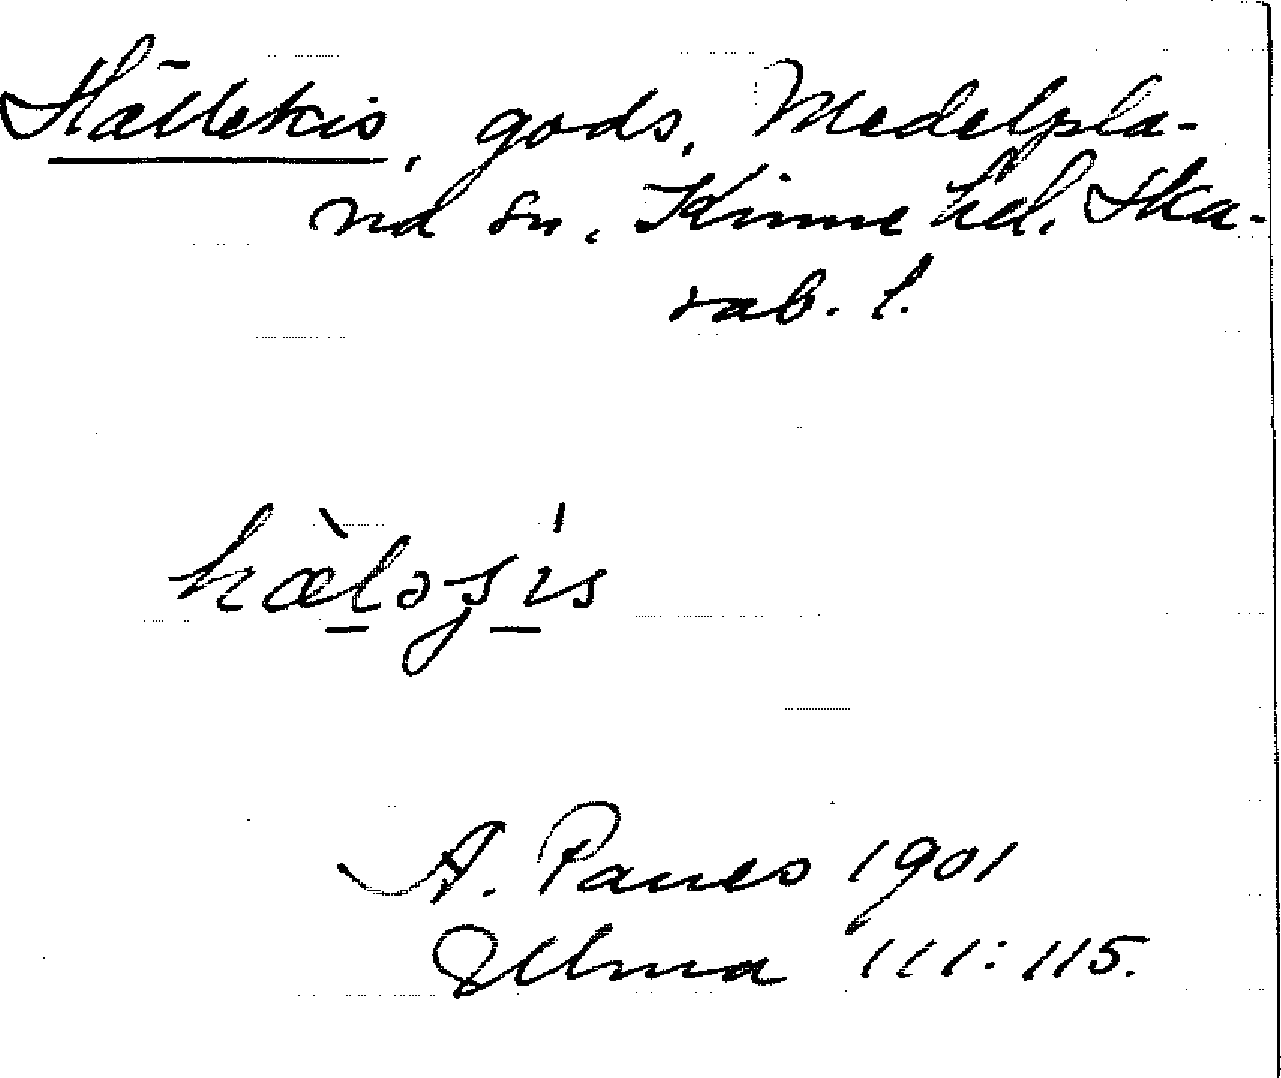 Hällekis, gods, Medelpla-
na sn, Kinne hd. Ska-
rab. l.
hæ̀lǝʃís
A. Panes 1901
Ulma 111:115.